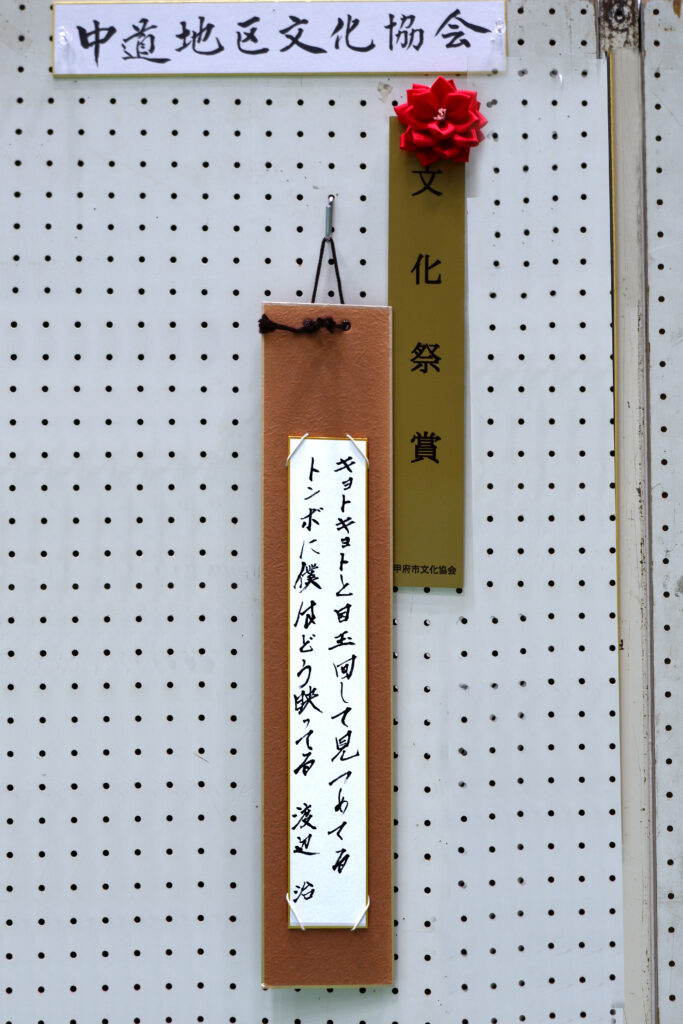 中道地区文化協会
文化祭賞
甲府市文化協会
キョトキョトと目玉回して見つめてる
トンボに僕はどう映ってる 渡辺 治